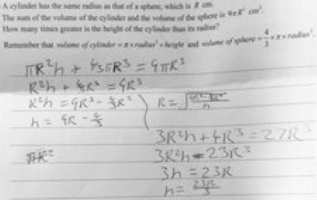 A cylinder has the same radius as that of a sphere, which is R cm.
The sum of the volume of the cylinder and the volume of the sphere is 9πR³ cm³.
How many times greater is the height of the cylinder than its radius?
Remember that volume of cylinder = π × radius² × height and volume of sphere = 4/3 × π × radius³.
πR²h + 4/3πR³ = 9πR³
R²h + 4/3R³ = 9R³
R²h = 9R³ - 4/3R³
R = √
h
h = 9R - 4/3
3R²h + 4R³ = 27R³
πR²
3R²h = 23R³
3h = 23R
h = 23R/3